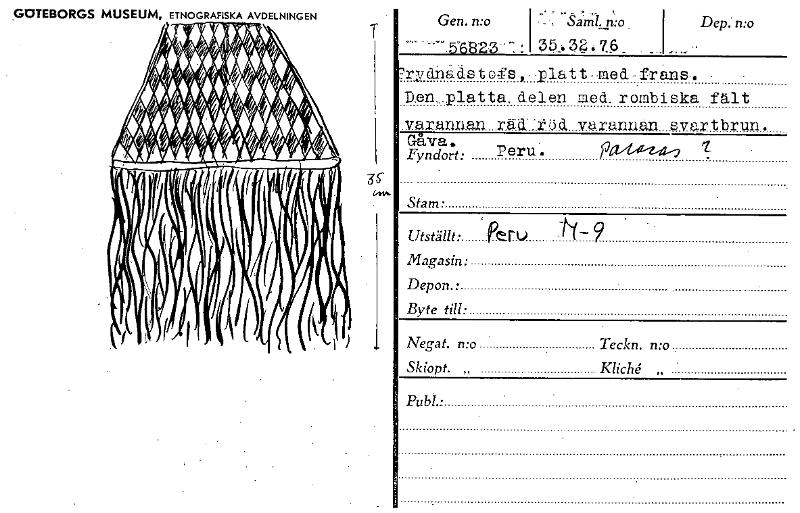 GÖTEBORGS MUSEUM, ETNOGRAFISKA AVDELNINGEN
35
cm
Gen. n:o Saml. n:o Dep. n:o
56823 35.32.76
Prydnadstofs, platt med frans.
Den platta delen med rombiska fält
varannan räd röd varannan svartbrun.
Gåva.
Fyndort: Peru. Paracas ?
Stam:
Utställt: Peru M-9
Magasin:
Depon.:
Byte till:
Negat. n:o Teckn. n:o
Skiopt. „ Kliché „
Publ.: